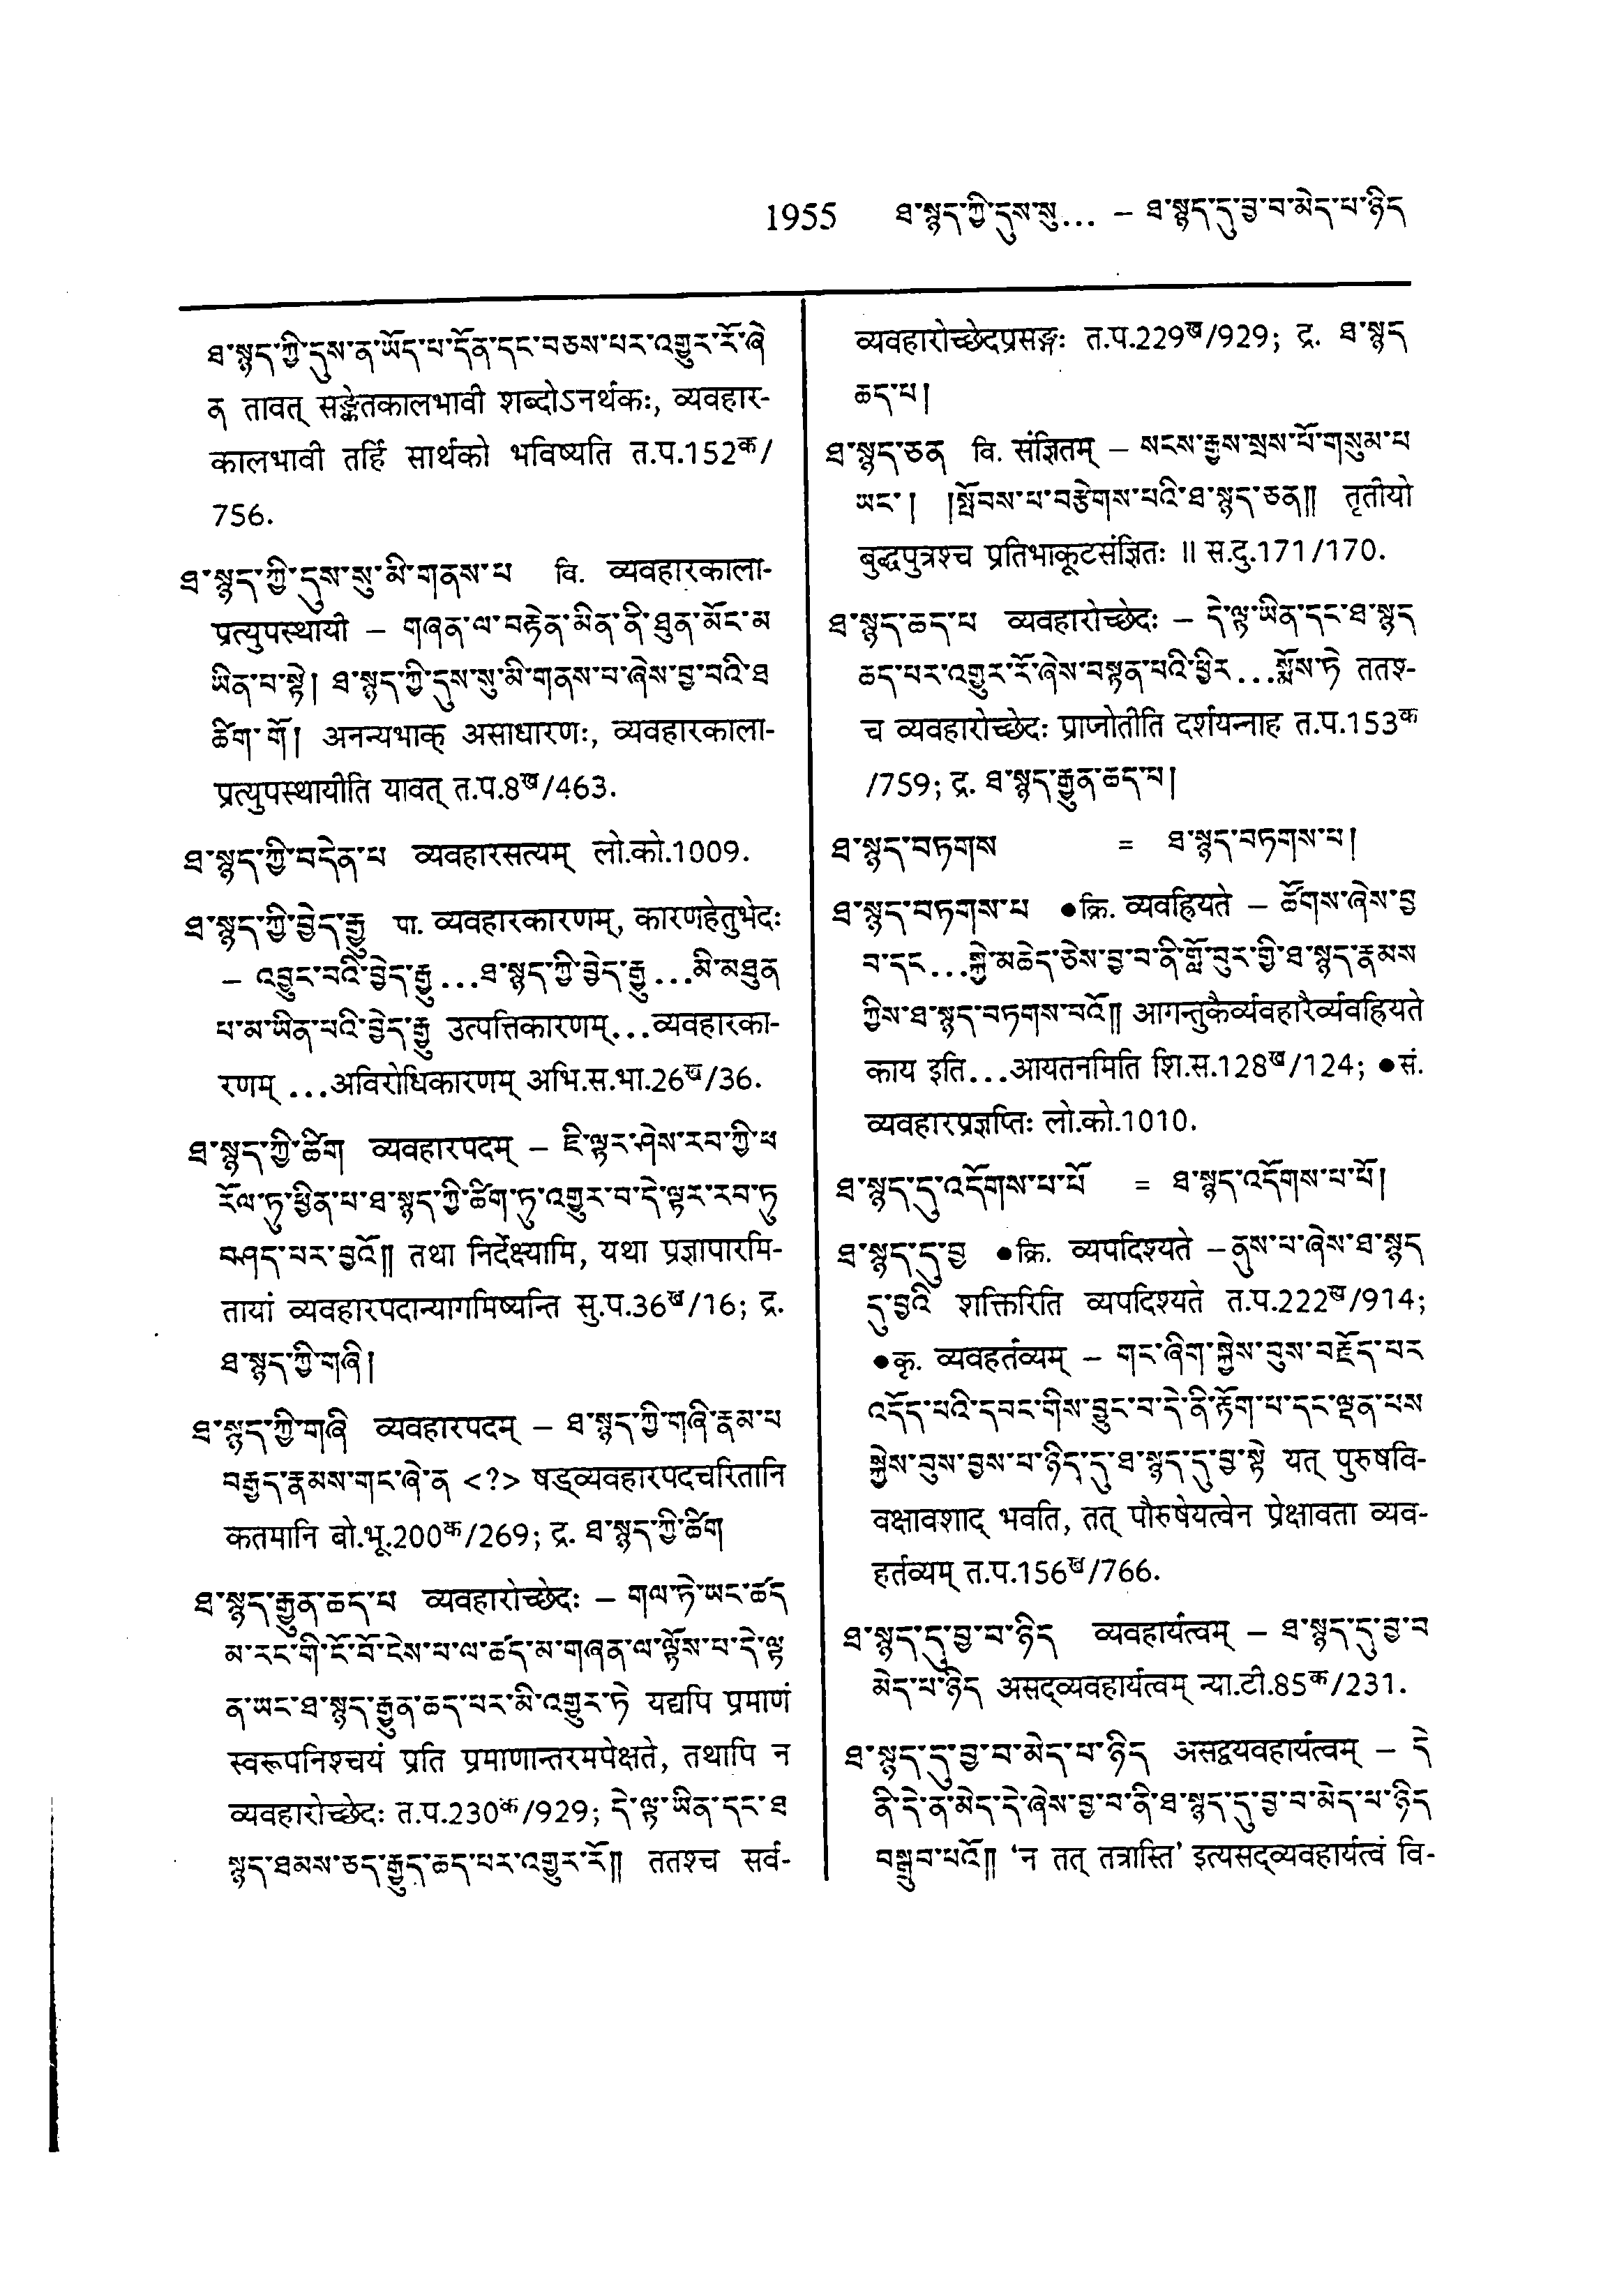 1955 ཐ་སྙད་ཀྱི་དུས་སུ... – ཐ་སྙད་དུ་བྱ་བ་མེད་པ་ཉིད
ཐ་སྙད་ཀྱི་དུས་ན་ཡོད་པ་དོན་དང་བཅས་པར་འགྱུར་རོ་ཞེ
ན तावत् सङ्केतकालभावी शब्दोऽनर्थकः, व्यवहार-
कालभावी तर्हि सार्थको भविष्यति त.प.152क/
756.
ཐ་སྙད་ཀྱི་དུས་སུ་མི་གནས་པ वि. व्यवहारकाला-
प्रत्युपस्थायी – གཞན་ལ་བརྟེན་མིན་ནི་ཐུན་མོང་མ
ཡིན་པ་སྟེ། ཐ་སྙད་ཀྱི་དུས་སུ་མི་གནས་པ་ཞེས་བྱ་བའི་ཐ
ཚིག་གོ། अनन्यभाक् असाधारणः, व्यवहारकाला-
प्रत्युपस्थायीति यावत् त.प.8ख/463.
ཐ་སྙད་ཀྱི་བདེན་པ व्यवहारसत्यम् लो.को.1009.
ཐ་སྙད་ཀྱི་བྱེད་རྒྱུ पा. व्यवहारकारणम्, कारणहेतुभेदः
– འབྱུང་བའི་བྱེད་རྒྱུ...ཐ་སྙད་ཀྱི་བྱེད་རྒྱུ...མི་མཐུན
པ་མ་ཡིན་པའི་བྱེད་རྒྱུ उत्पत्तिकारणम्...व्यवहारका-
रणम् ...अविरोधिकारणम् अभि.स.भा.26ख/36.
ཐ་སྙད་ཀྱི་ཚིག व्यवहारपदम् – ཇི་ལྟར་ཤེས་རབ་ཀྱི་ཕ
རོལ་ཏུ་ཕྱིན་པ་ཐ་སྙད་ཀྱི་ཚིག་ཏུ་འགྱུར་བ་དེ་ལྟར་རབ་ཏུ
བཤད་པར་བྱའོ༎ तथा निर्देक्ष्यामि, यथा प्रज्ञापारमि-
तायां व्यवहारपदान्यागमिष्यन्ति सु.प.36ख/16; द्र.
ཐ་སྙད་ཀྱི་གཞི།
ཐ་སྙད་ཀྱི་གཞི व्यवहारपदम् – ཐ་སྙད་ཀྱི་གཞི་རྣམ་པ
བརྒྱད་རྣམས་གང་ཞེ་ན <?> षड्व्यवहारपदचरितानि
कतमानि बो.भू.200क/269; द्र. ཐ་སྙད་ཀྱི་ཚིག
ཐ་སྙད་རྒྱུན་ཆད་པ व्यवहारोच्छेदः – གལ་ཏེ་ཡང་ཚད
མ་རང་གི་ངོ་བོ་ངེས་པ་ལ་ཚད་མ་གཞན་ལ་ལྟོས་པ་དེ་ལྟ
ན་ཡང་ཐ་སྙད་རྒྱུན་ཆད་པར་མི་འགྱུར་ཏེ यद्यपि प्रमाणं
स्वरूपनिश्चयं प्रति प्रमाणान्तरमपेक्षते, तथापि न
व्यवहारोच्छेदः त.प.230क/929; དེ་ལྟ་ཡིན་དང་ཐ
སྙད་ཐམས་ཅད་རྒྱུད་ཆད་པར་འགྱུར་རོ༎ ततश्च सर्व-
व्यवहारोच्छेदप्रसङ्गः त.प.229ख/929; द्र. ཐ་སྙད
ཆད་པ།
ཐ་སྙད་ཅན वि. संज्ञितम् – སངས་རྒྱས་སྲས་པོ་གསུམ་པ
ཡང་། །སྤོབས་པ་བརྩེགས་པའི་ཐ་སྙད་ཅན༎ तृतीयो
बुद्धपुत्रश्च प्रतिभाकूटसंज्ञितः ॥ स.दु.171/170.
ཐ་སྙད་ཆད་པ व्यवहारोच्छेदः – དེ་ལྟ་ཡིན་དང་ཐ་སྙད
ཆད་པར་འགྱུར་རོ་ཞེས་བསྟན་པའི་ཕྱིར...སྨོས་ཏེ ततश-
च व्यवहारोच्छेदः प्राप्नोतीति दर्शयन्नाह त.प.153क
/759; द्र. ཐ་སྙད་རྒྱུན་ཆད་པ།
ཐ་སྙད་བཏགས = ཐ་སྙད་བཏགས་པ།
ཐ་སྙད་བཏགས་པ ●क्रि. व्यवह्रियते – ཚོགས་ཞེས་བྱ
བ་དང...སྐྱེ་མཆེད་ཅེས་བྱ་བ་ནི་གློ་བུར་གྱི་ཐ་སྙད་རྣམས
ཀྱིས་ཐ་སྙད་བཏགས་པའོ༎ आगन्तुकैर्व्यवहारैर्व्यवह्रियते
काय इति...आयतनमिति शि.स.128ख/124; ●सं.
व्यवहारप्रज्ञप्तिः लो.को.1010.
ཐ་སྙད་དུ་འདོགས་པ་པོ = ཐ་སྙད་འདོགས་པ་པོ།
ཐ་སྙད་དུ་བྱ ●क्रि. व्यपदिश्यते –ནུས་པ་ཞེས་ཐ་སྙད
དུ་བྱའི शक्तिरिति व्यपदिश्यते त.प.222ख/914;
●कृ. व्यवहर्तव्यम् – གང་ཞིག་སྐྱེས་བུས་བརྗོད་པར
འདོད་པའི་དབང་གིས་བྱུང་བ་དེ་ནི་རྟོག་པ་དང་ལྡན་པས
སྐྱེས་བུས་བྱས་པ་ཉིད་དུ་ཐ་སྙད་དུ་བྱ་སྟེ यत् पुरुषवि-
वक्षावशाद् भवति, तत् पौरुषेयत्वेन प्रेक्षावता व्यव-
हर्तव्यम् त.प.156ख/766.
ཐ་སྙད་དུ་བྱ་བ་ཉིད व्यवहार्यत्वम् – ཐ་སྙད་དུ་བྱ་བ
མེད་པ་ཉིད असद्व्यवहार्यत्वम् न्या.टी.85क/231.
ཐ་སྙད་དུ་བྱ་བ་མེད་པ་ཉིད असद्व्यवहार्यत्वम् – དེ
ནི་དེ་ན་མེད་དེ་ཞེས་བྱ་བ་ནི་ཐ་སྙད་དུ་བྱ་བ་མེད་པ་ཉིད
བསྒྲུབ་པའོ༎ ‘न तत् तत्रास्ति’ इत्यसद्व्यवहार्यत्वं वि-